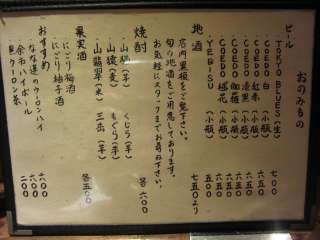 おのみもの
ビール
TOKYO BLUES (生) 七〇〇
COEDO 紅赤 (小瓶) 六五〇
COEDO 伽羅 (小瓶) 六五〇
COEDO 漆黒 (小瓶) 六五〇
COEDO 瑠璃 (小瓶) 六五〇
YEBISU (小瓶) 五〇〇
地酒 七五〇より
店内黒板をご覧下さい。
旬の地酒をご用意しております。
お気軽にスタッフまでお尋ね下さい。
焼酎 各六〇〇
山猫 (芋) くじら (芋)
山猿 (麦) もぐら (芋)
山翡翠 (米) 三岳 (芋)
果実酒 各五五〇
にごり梅酒
にごり柚子酒
おすすめ
なな蓮のウーロンハイ 六〇〇
余市ハイボール 六〇〇
黒ウーロン茶 二〇〇